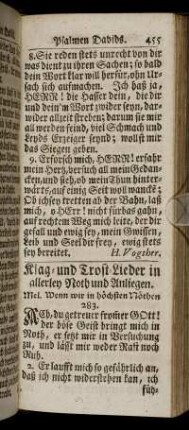 Psalmen Davids. 455
8. Sie reden stets unrecht von dir
was dient zu ihren Sachen; so bald
dein Wort klar will herfür, ohn Ur-
sach sich aufmachen. Ich haß ja,
HERR! die Hasser dein, die dir
und dein'm Wort zwider seyn, dar-
wider allzeit streben; darum sie mir
all werden feind, viel Schmach und
Leyds Erzeiger seynd; wollst mir
das Siegen geben.
9. Erforsch mich, HERR! erfahr
mein Hertz, versuch all mein Gedan-
cken, und sieh, ob mein Thun hinter-
wärts, auf einig Seit woll wancke;
Ob ich sey tretten ab der Bahn, laß
mich, o HErr! nicht fürbas gahn,
auf rechtem Weg mich leite, der dir
gefall und ewig sey, mein Gwissen,
Leib und Seel dir frey, ewig stets
sey bereitet. H. Vogther.
Klag- und Trost-Lieder in
allerley Noth und Anliegen.
Mel. Wenn wir in höchsten Nöthen
283.
ACh, du getreuer frommer GOtt!
der böse Geist bringt mich in
Noth, er setzt mir in Versuchung
zu, und läßt mir weder Rast noch
Ruh.
2. Er laufft mich so gefährlich an,
daß ich nicht widerstehen kan, ich
füh-